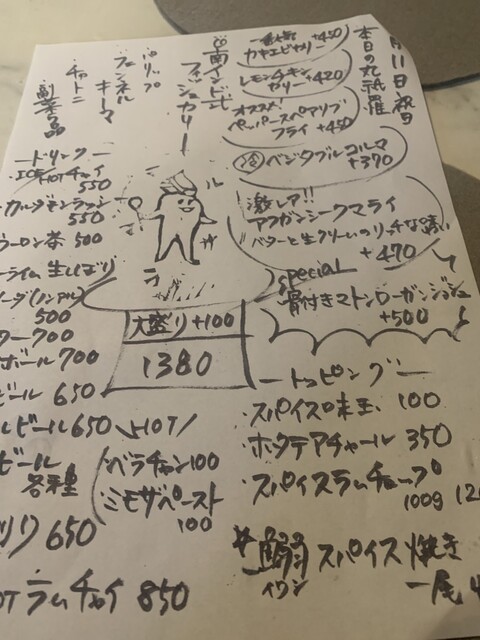 月11日祝日
本日の
一番人気 +450
カキエビカリー
レモンチキン
カリー +420
オススメ!
ペッパースペアリブ
フライ +450
ベジタブルコルマ
+370
激レア!!
アフガンシークマライ
バターと生クリームのリッチな味い
+470
Special
骨付きマトンローガンジョシュ
+500
南インド式
フィッシュカリー
フェンネル
キーマ
副菜3品
ードリンクー
ICE/HOTチャイ
550
カルダモンラッシー
550
ウーロン茶 500
ライム生しぼり
ソーダ(ノンアル)
500
ワー700
ボール700
ビール 650
ルビール650
ビール
各種
650
OTラムチャイ 850
大盛り+100
1380
HOT
ベラチャン100
ミモザペースト
100
ートッピングー
・スパイス味玉 100
・ホタテアチャール 350
・スパイスラムチョップ
100g 12
鰯スパイス焼き
イワシ
一尾 4